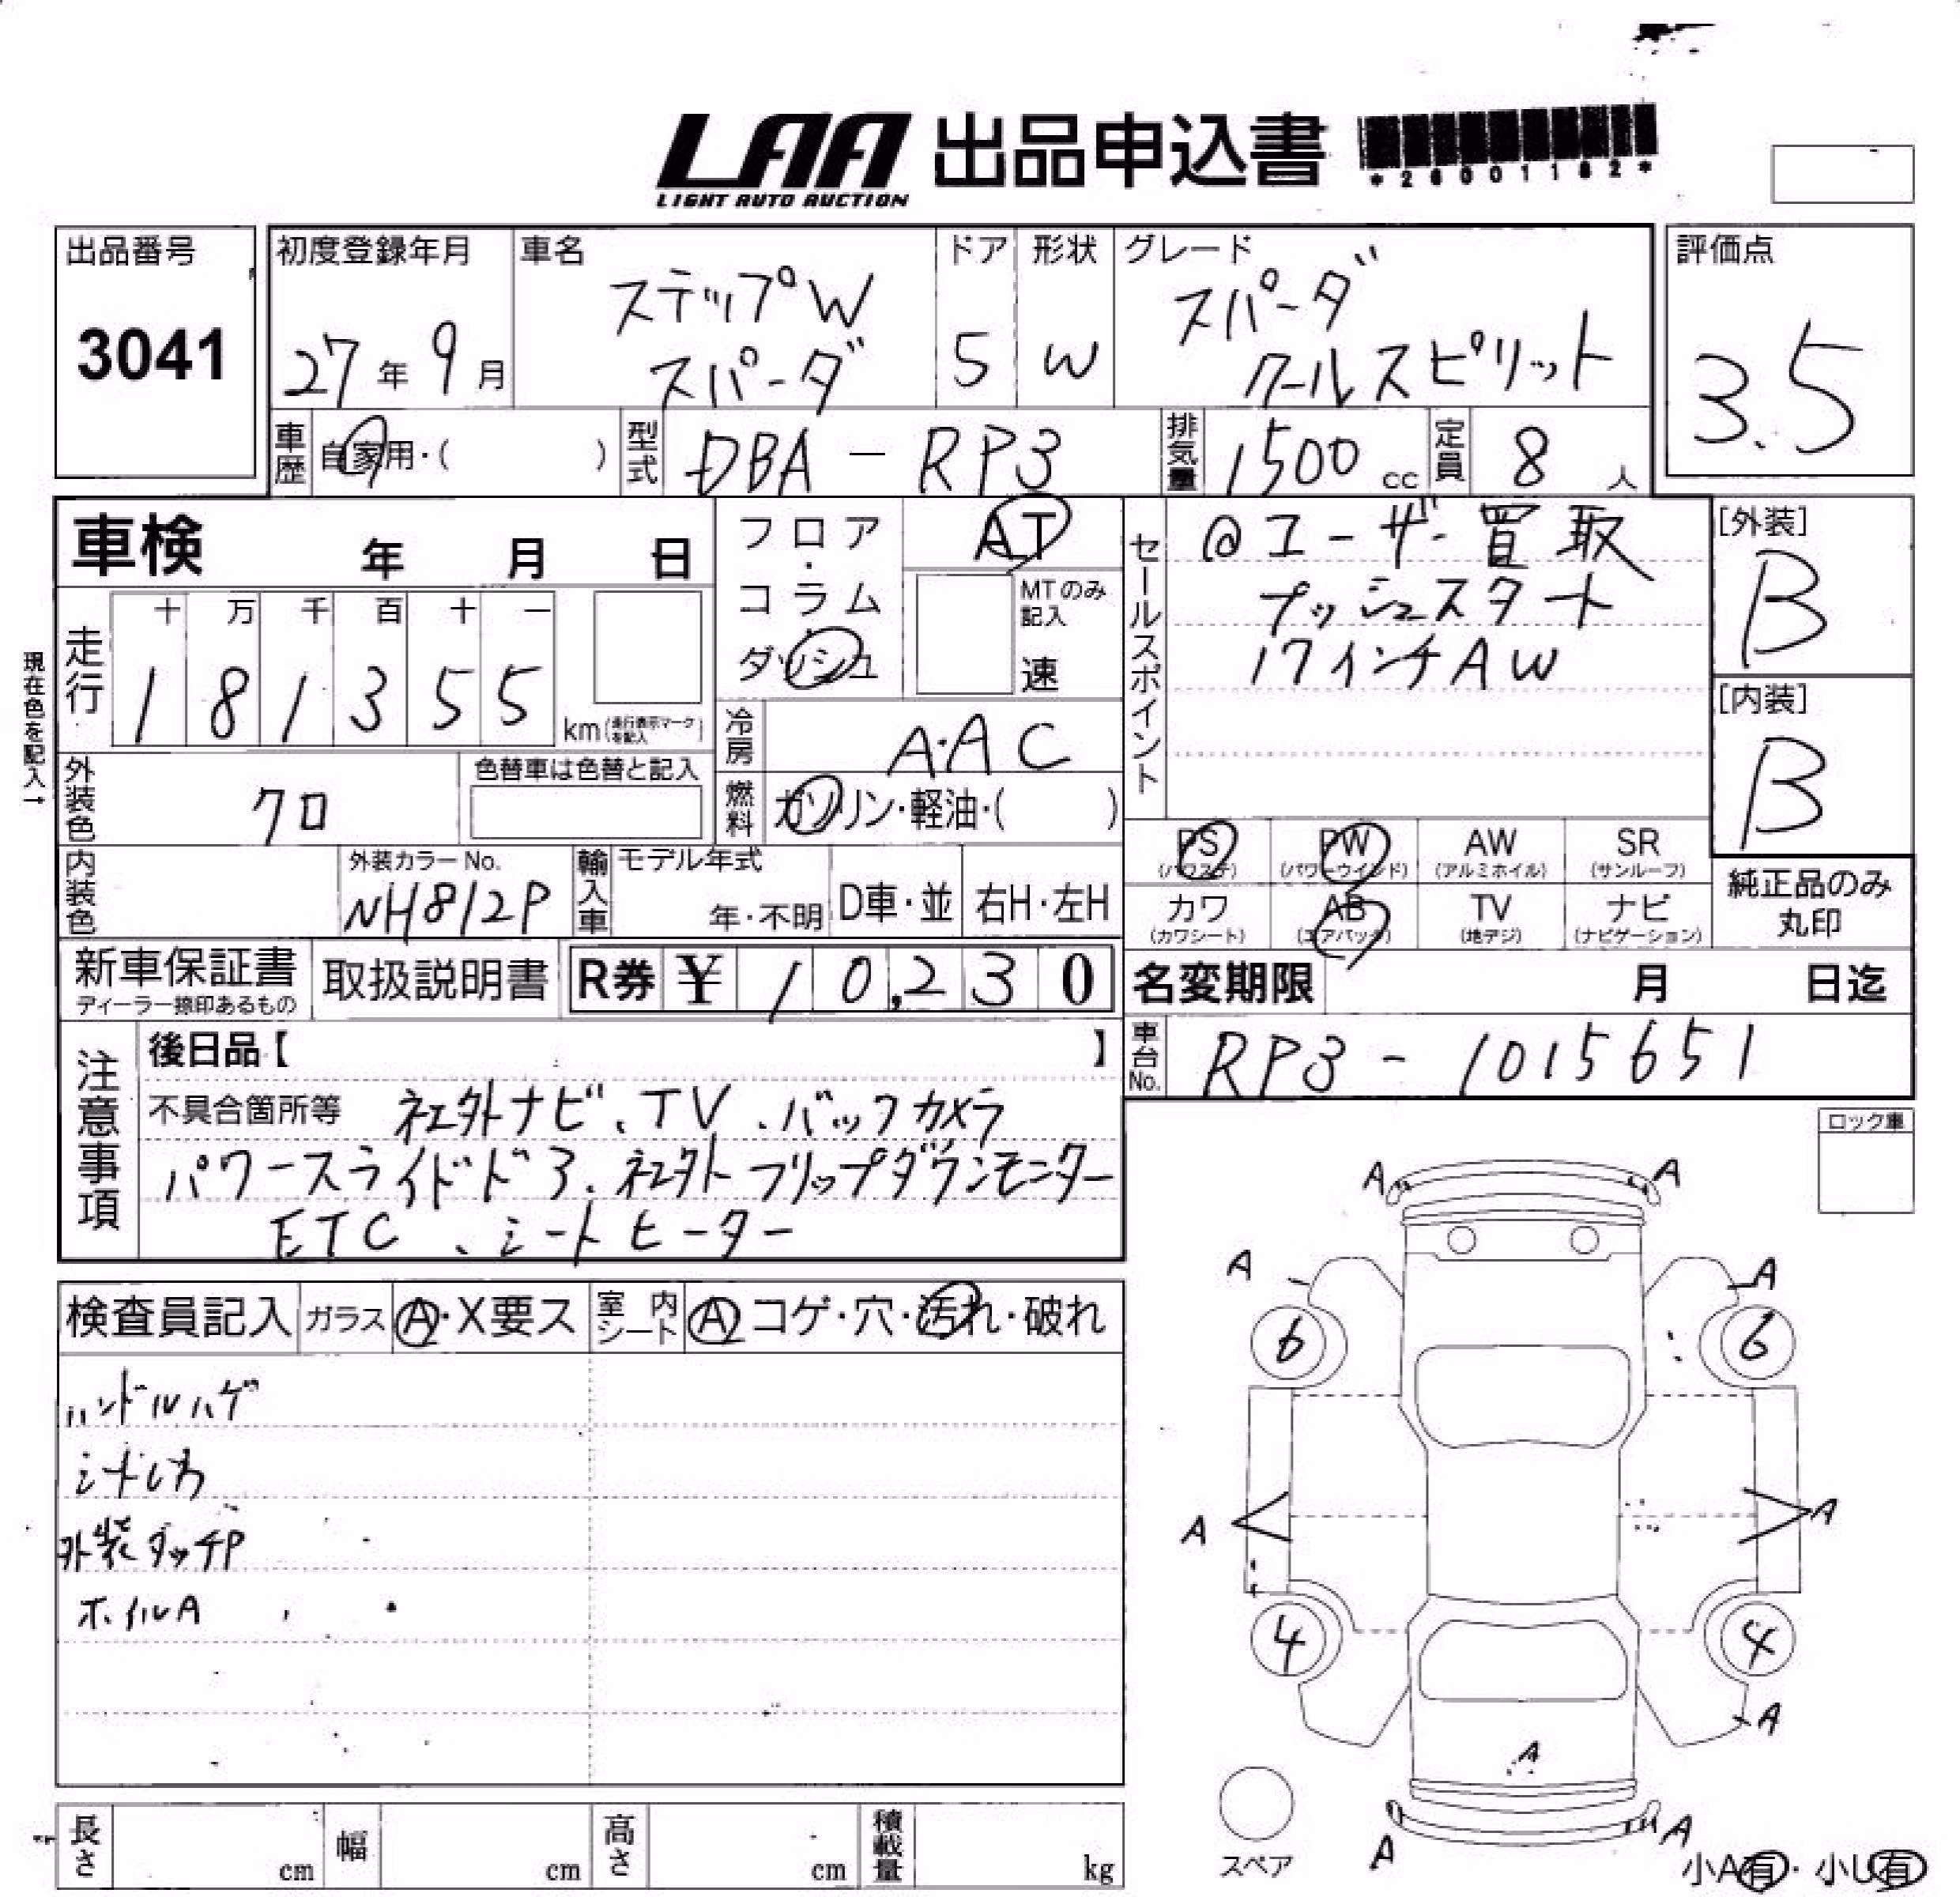 LAA 出品申込書
LIGHT AUTO AUCTION
*26001182*
出品番号
3041
初度登録年月
27年 9月
車名
ステップW
スパーダ
ドア
5
形状
W
グレード
スパーダ
クールスピリット
評価点
3.5
車歴 自家用・( )
型式 DBA-RP3
排気量 1500 cc
定員 8 人
車検 年 月 日
フロア・コラム・ダッシュ
AT
MTのみ記入
速
走行
十 万 千 百 十 一
1 8 1 3 5 5
km(走行表示マークを記入)
現在色を記入→
外装色 クロ
色替車は色替と記入
冷房 A・AC
燃料 ガソリン・軽油・( )
内装色
外装カラーNo.
NH812P
輸入車 モデル年式
年・不明
D車・並
右H・左H
セールスポイント
@ユーザー買取
プッシュスタート
17インチAW
[外装]
B
[内装]
B
PS (パワステ)
PW (パワーウインド)
AW (アルミホイル)
SR (サンルーフ)
カワ (カワシート)
AB (エアバック)
TV (地デジ)
ナビ (ナビゲーション)
純正品のみ
丸印
新車保証書
ディーラー捺印あるもの
取扱説明書
R券 ¥ 10,230
名変期限 月 日迄
車台No. RP3-1015651
注意事項
後日品【 】
不具合箇所等 社外ナビ、TV、バックカメラ
パワースライドドア、社外フリップダウンモニター
ETC、シートヒーター
ロック車
検査員記入
ガラス A・X要ス
室内シート A コゲ・穴・汚れ・破れ
ハンドルハゲ
外装タッチP
ホイルA
A A
A A
6 6
A A
4 4
A
A
A A
スペア
小A有・小U有
長さ cm
幅 cm
高さ cm
積載量 kg